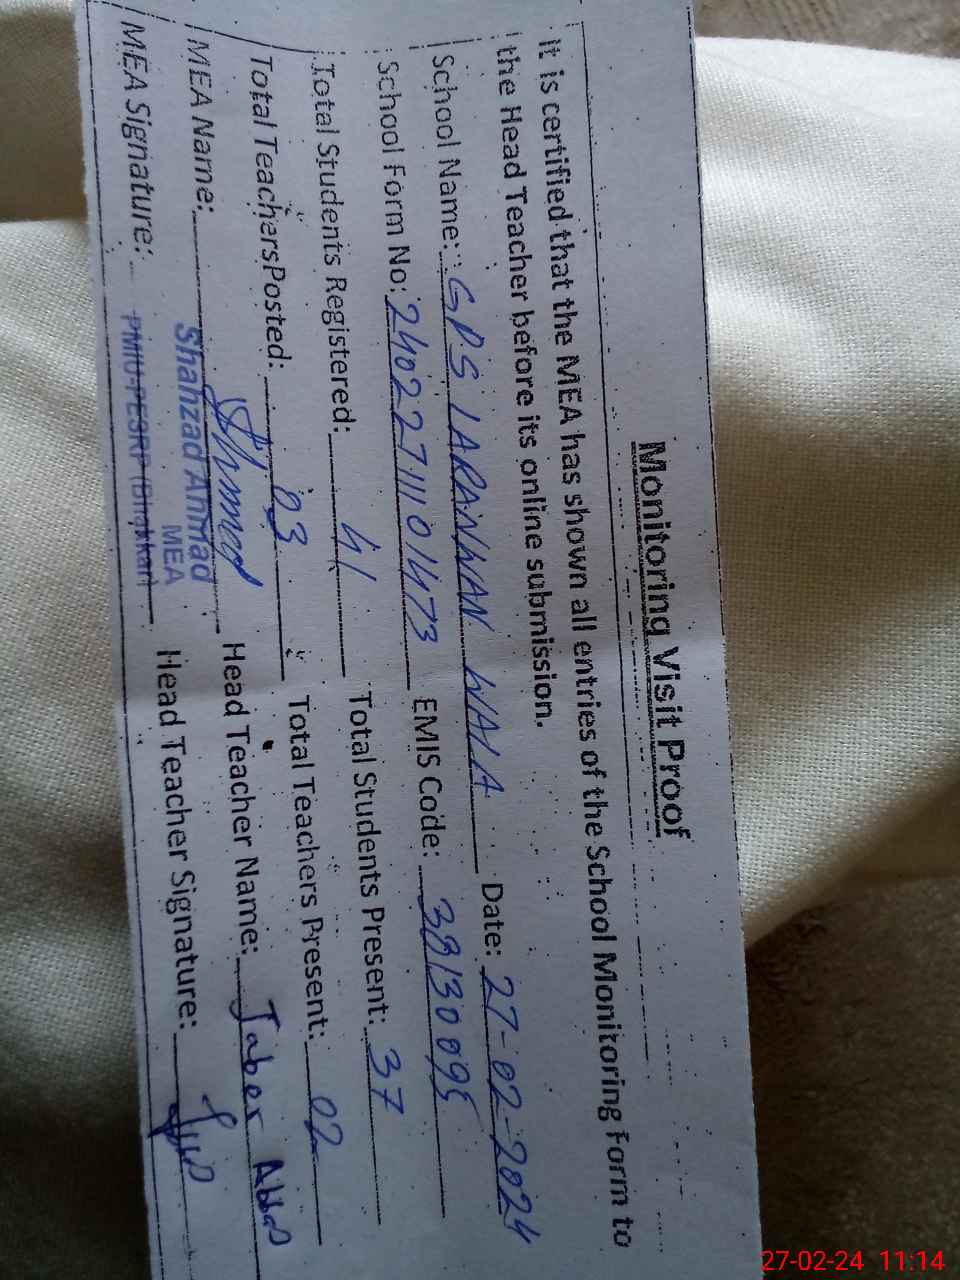 Monitoring Visit Proof
It is certified that the MEA has shown all entries of the School Monitoring Form to
the Head Teacher before its online submission.
School Name: GPS LARANWAN WALA Date: 27-02-2024
School Form No: 24022711101473 EMIS Code: 38130095
Total Students Registered: 41 Total Students Present: 37
Total Teachers Posted: 03 Total Teachers Present: 02
MEA Name: Shahzad Ahmad Head Teacher Name: Jaber Abbas
MEA
MEA Signature: Ahmed Head Teacher Signature:
PMIU-PESRP (Bhakkar)
27-02-24 11:14